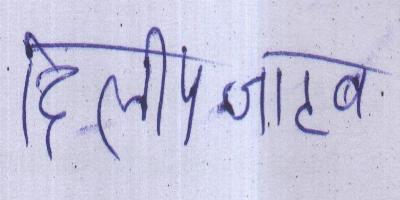 दिलीप जाटव